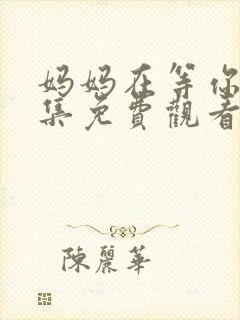 妈妈在等你
集免費觀看
陳麗華